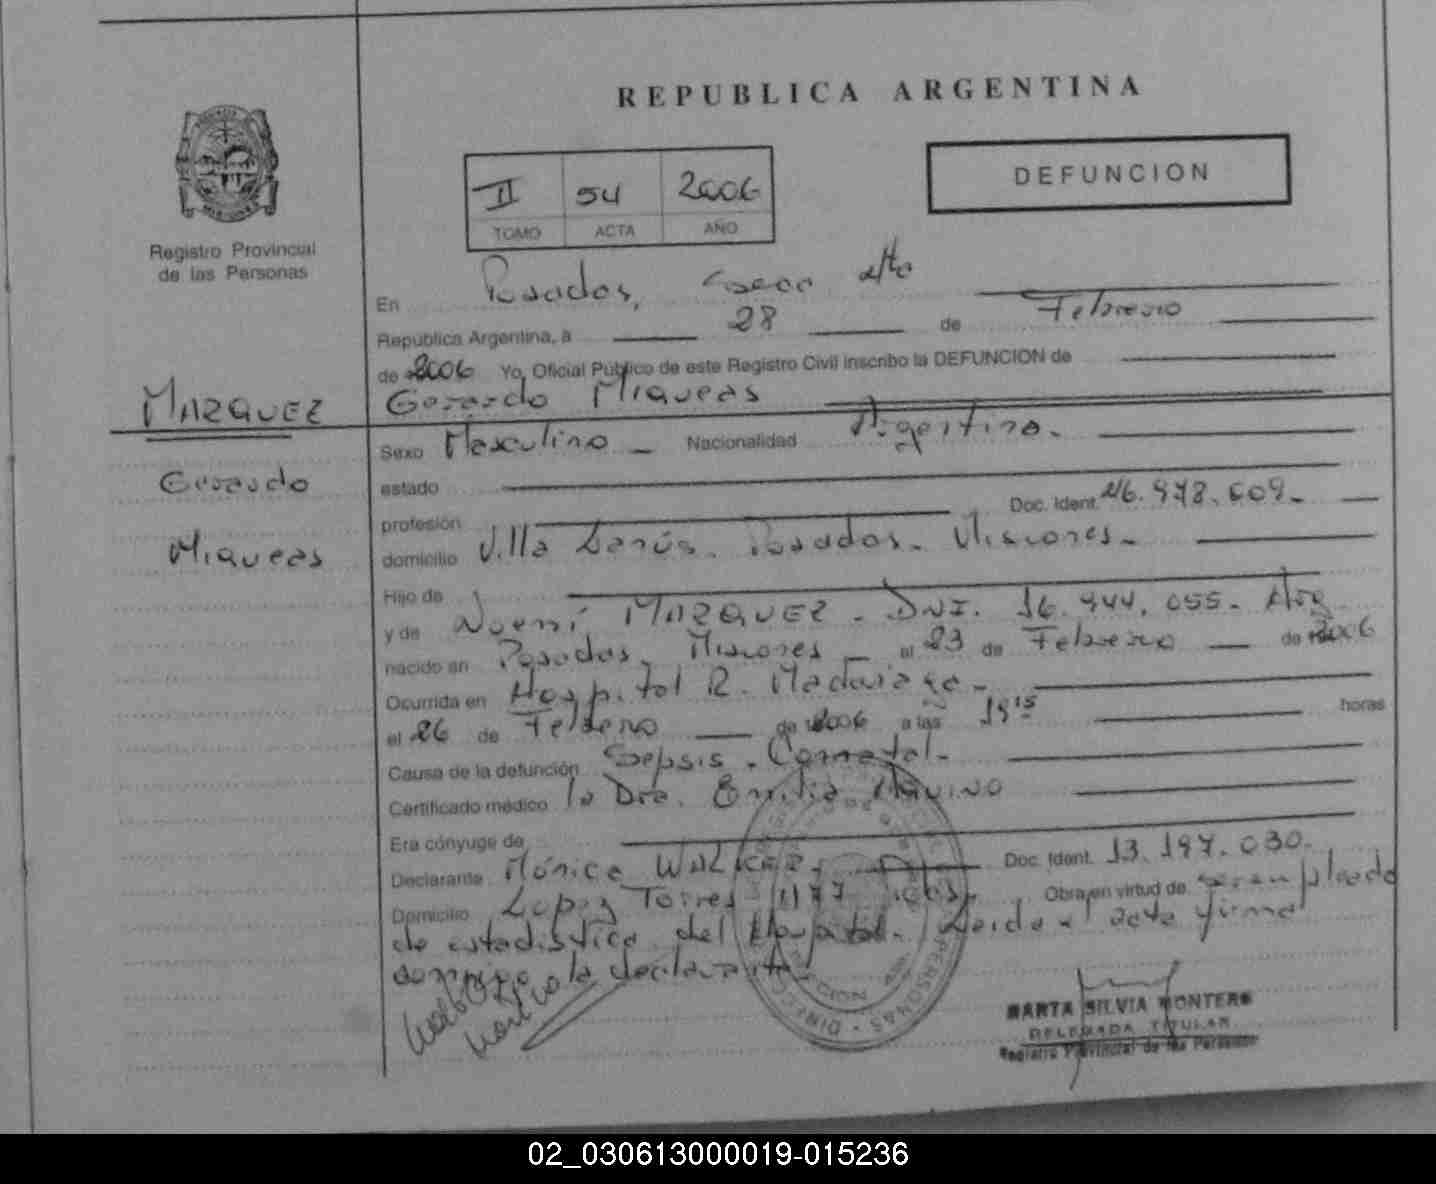 REPUBLICA ARGENTINA
II 54 2006
TOMO ACTA AÑO
DEFUNCION
Registro Provincial
de las Personas
En Posadas,
República Argentina, a 28 de Febrero
de 2006 Yo, Oficial Público de este Registro Civil inscribo la DEFUNCION de
MARQUEZ Gerardo Miqueas
Sexo Masculino Nacionalidad Argentina.
Gerardo
estado
profesión Doc. Ident. 46.978.609.
Miqueas
domicilio Villa Lanús. Posadas. Misiones.
Hijo de
y de Noemí MARQUEZ. DNI. 16.944.055. Arg
nacido en Posadas, Misiones el 23 de Febrero de 2006
Ocurrida en Hospital R. Madariaga.
el 26 de Febrero de 2006 a las 19 15 horas
Causa de la defunción Sepsis. Connatal.
Certificado médico la Dra. Emilia
Era cónyuge de
Declarante Mónica WALKER. Doc. Ident. 13.197.030.
Domicilio Lopez Torres 1177 Obra en virtud de ser empleada
de estadística del Hospital. Leida el acta firma
conmigo la declarante.
MARTA SILVIA MONTERO
DELEGADA TITULAR
Registro Provincial de las Personas
02_030613000019-015236